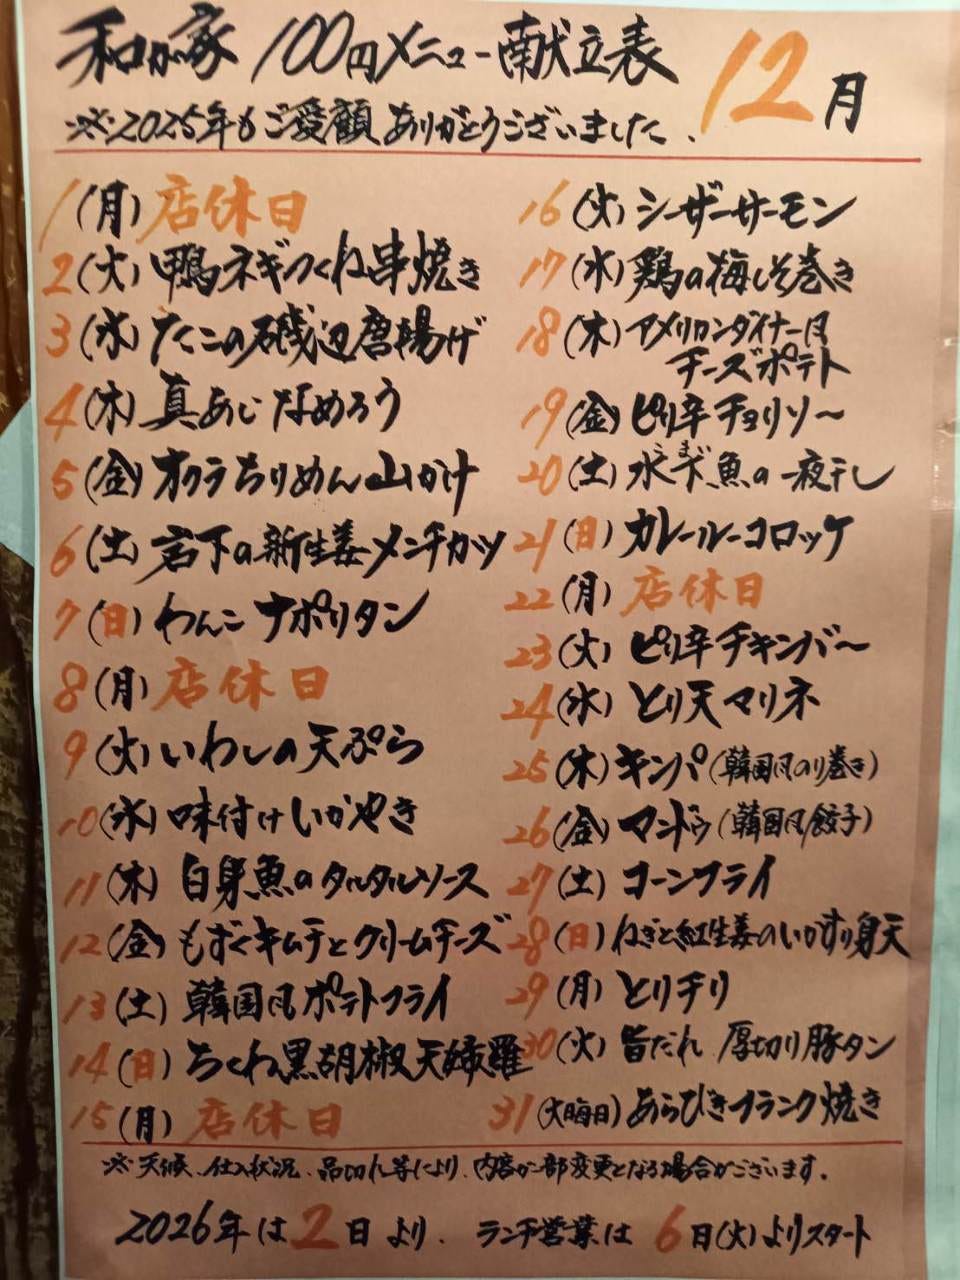 和が家 100円メニュー献立表 12月
※2025年もご愛顧ありがとうございました、
1(月)店休日
2(火)鴨ネギつくね串焼き
3(水)たこの磯辺唐揚げ
4(木)真あじなめろう
5(金)オクラちりめん山かけ
6(土)岩下の新生姜メンチカツ
7(日)わんこナポリタン
8(月)店休日
9(火)いわしの天ぷら
10(水)味付けいかやき
11(木)白身魚のタルタルソース
12(金)もずくキムチとクリームチーズ
13(土)韓国風ポテトフライ
14(日)ちくわ黒胡椒天婦羅
15(月)店休日
16(火)シーザーサーモン
17(水)鶏の梅しそ巻き
18(木)アメリカンダイナー風
チーズポテト
19(金)ピリ辛チョリソー
20(土)水下魚の一夜干し
こまい
21(日)カレールーコロッケ
22(月)店休日
23(火)ピリ辛チキンバー
24(水)とり天マリネ
25(木)キンパ(韓国風のり巻き)
26(金)マンドゥ(韓国風餃子)
27(土)コーンフライ
28(日)ねぎと紅生姜のいかすり身天
29(月)とりチリ
30(火)旨だれ 厚切り豚タン
31(大晦日)あらびきフランク焼き
※天候、仕入状況、品切れ等により、内容が一部変更となる場合がございます。
2026年は2日より、ランチ営業は6日(火)よりスタート